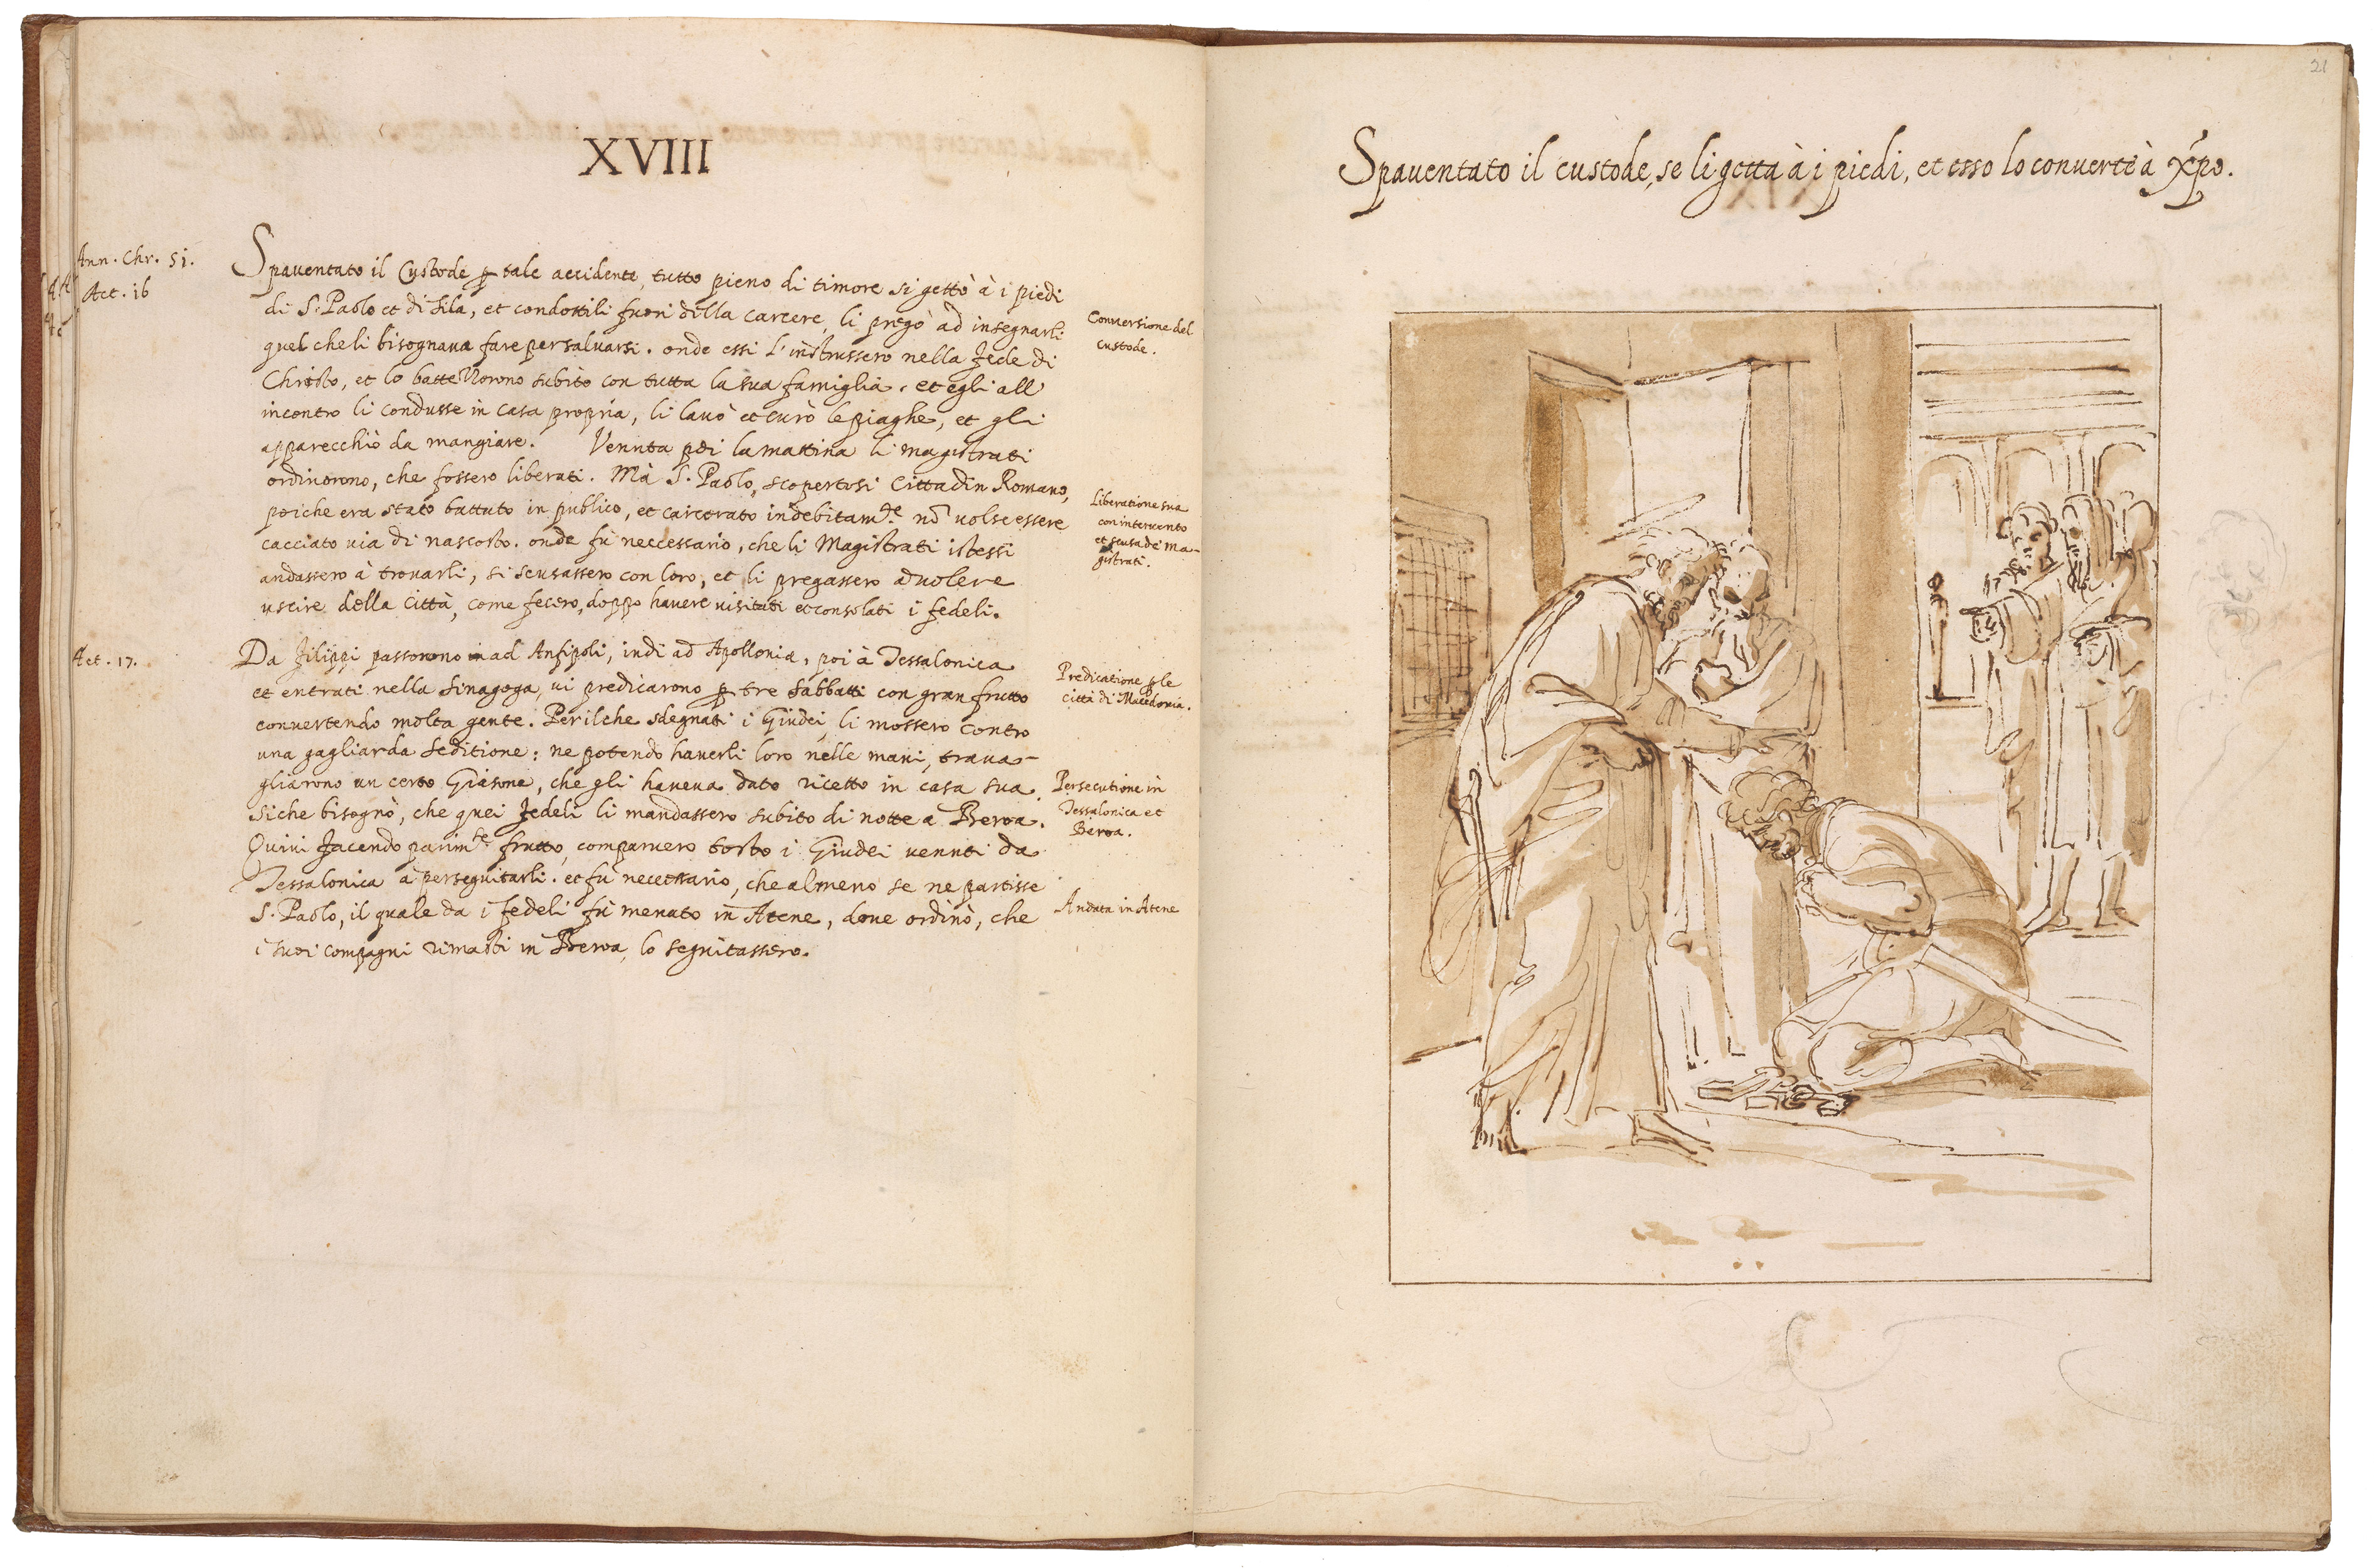 XVIII
Ann. Chr. 51.
Act. 16
Spauentato il Custode ꝑ tale accidente, tutto pieno di timore si gettò à i piedi
di S. Paolo et di Sila, et condottili fuori della carcere, li pregò ad insegnarli
quel che li bisognaua fare per saluarsi. onde essi l'instrussero nella fede di
Christo, et lo battezzorono subito con tutta la sua famiglia. et egli all'
incontro li condusse in casa propria, li lauò et curò le piaghe, et gli
apparecchiò da mangiare. Venuta poi la mattina li magistrati
ordinorono, che fossero liberati. Mà S. Paolo, scopertosi Cittadin Romano,
poiche era stato battuto in publico, et carcerato indebitam.te nõ uolse essere
cacciato uia di nascosto. onde fù neccessario, che li Magistrati istessi
andassero à trouarli, si scusassero con loro, et li pregassero à uolere
uscire della Città, come fecero, doppo hauere uisitati et consolati i fedeli.
Conuersione del
custode.
Liberatione sua
con interuento
et scusa de' Ma-
gistrati.
Act. 17.
Da Filippi passorono ad Anfipoli, indi ad Apollonia, poi à Tessalonica
et entrati nella Sinagoga, ui predicarono ꝑ tre Sabbatti con gran frutto
conuertendo molta gente. Perilche sdegnati i Giudei, li mossero contro
una gagliarda seditione: ne potendo hauerli loro nelle mani, traua-
gliarono un certo Giasone, che gli haueua dato ricetto in casa sua.
Siche bisognò, che quei fedeli li mandassero subito di notte a Beroa.
Quiui facendo parim.te frutto, comparuero tosto i Giudei uenuti da
Tessalonica à perseguitarli. et fù necessario, che almeno se ne partisse
S. Paolo, il quale da i fedeli fù menato in Atene, doue ordinò, che
i suoi compagni rimasti in Beroa, lo seguitassero.
Predicatione ꝑ le
città di Macedonia.
Persecutione in
Tessalonica et
Beroa.
Andata in Atene
21
Spauentato il custode, se li getta à i piedi, et esso lo conuerte à Xp̃o.